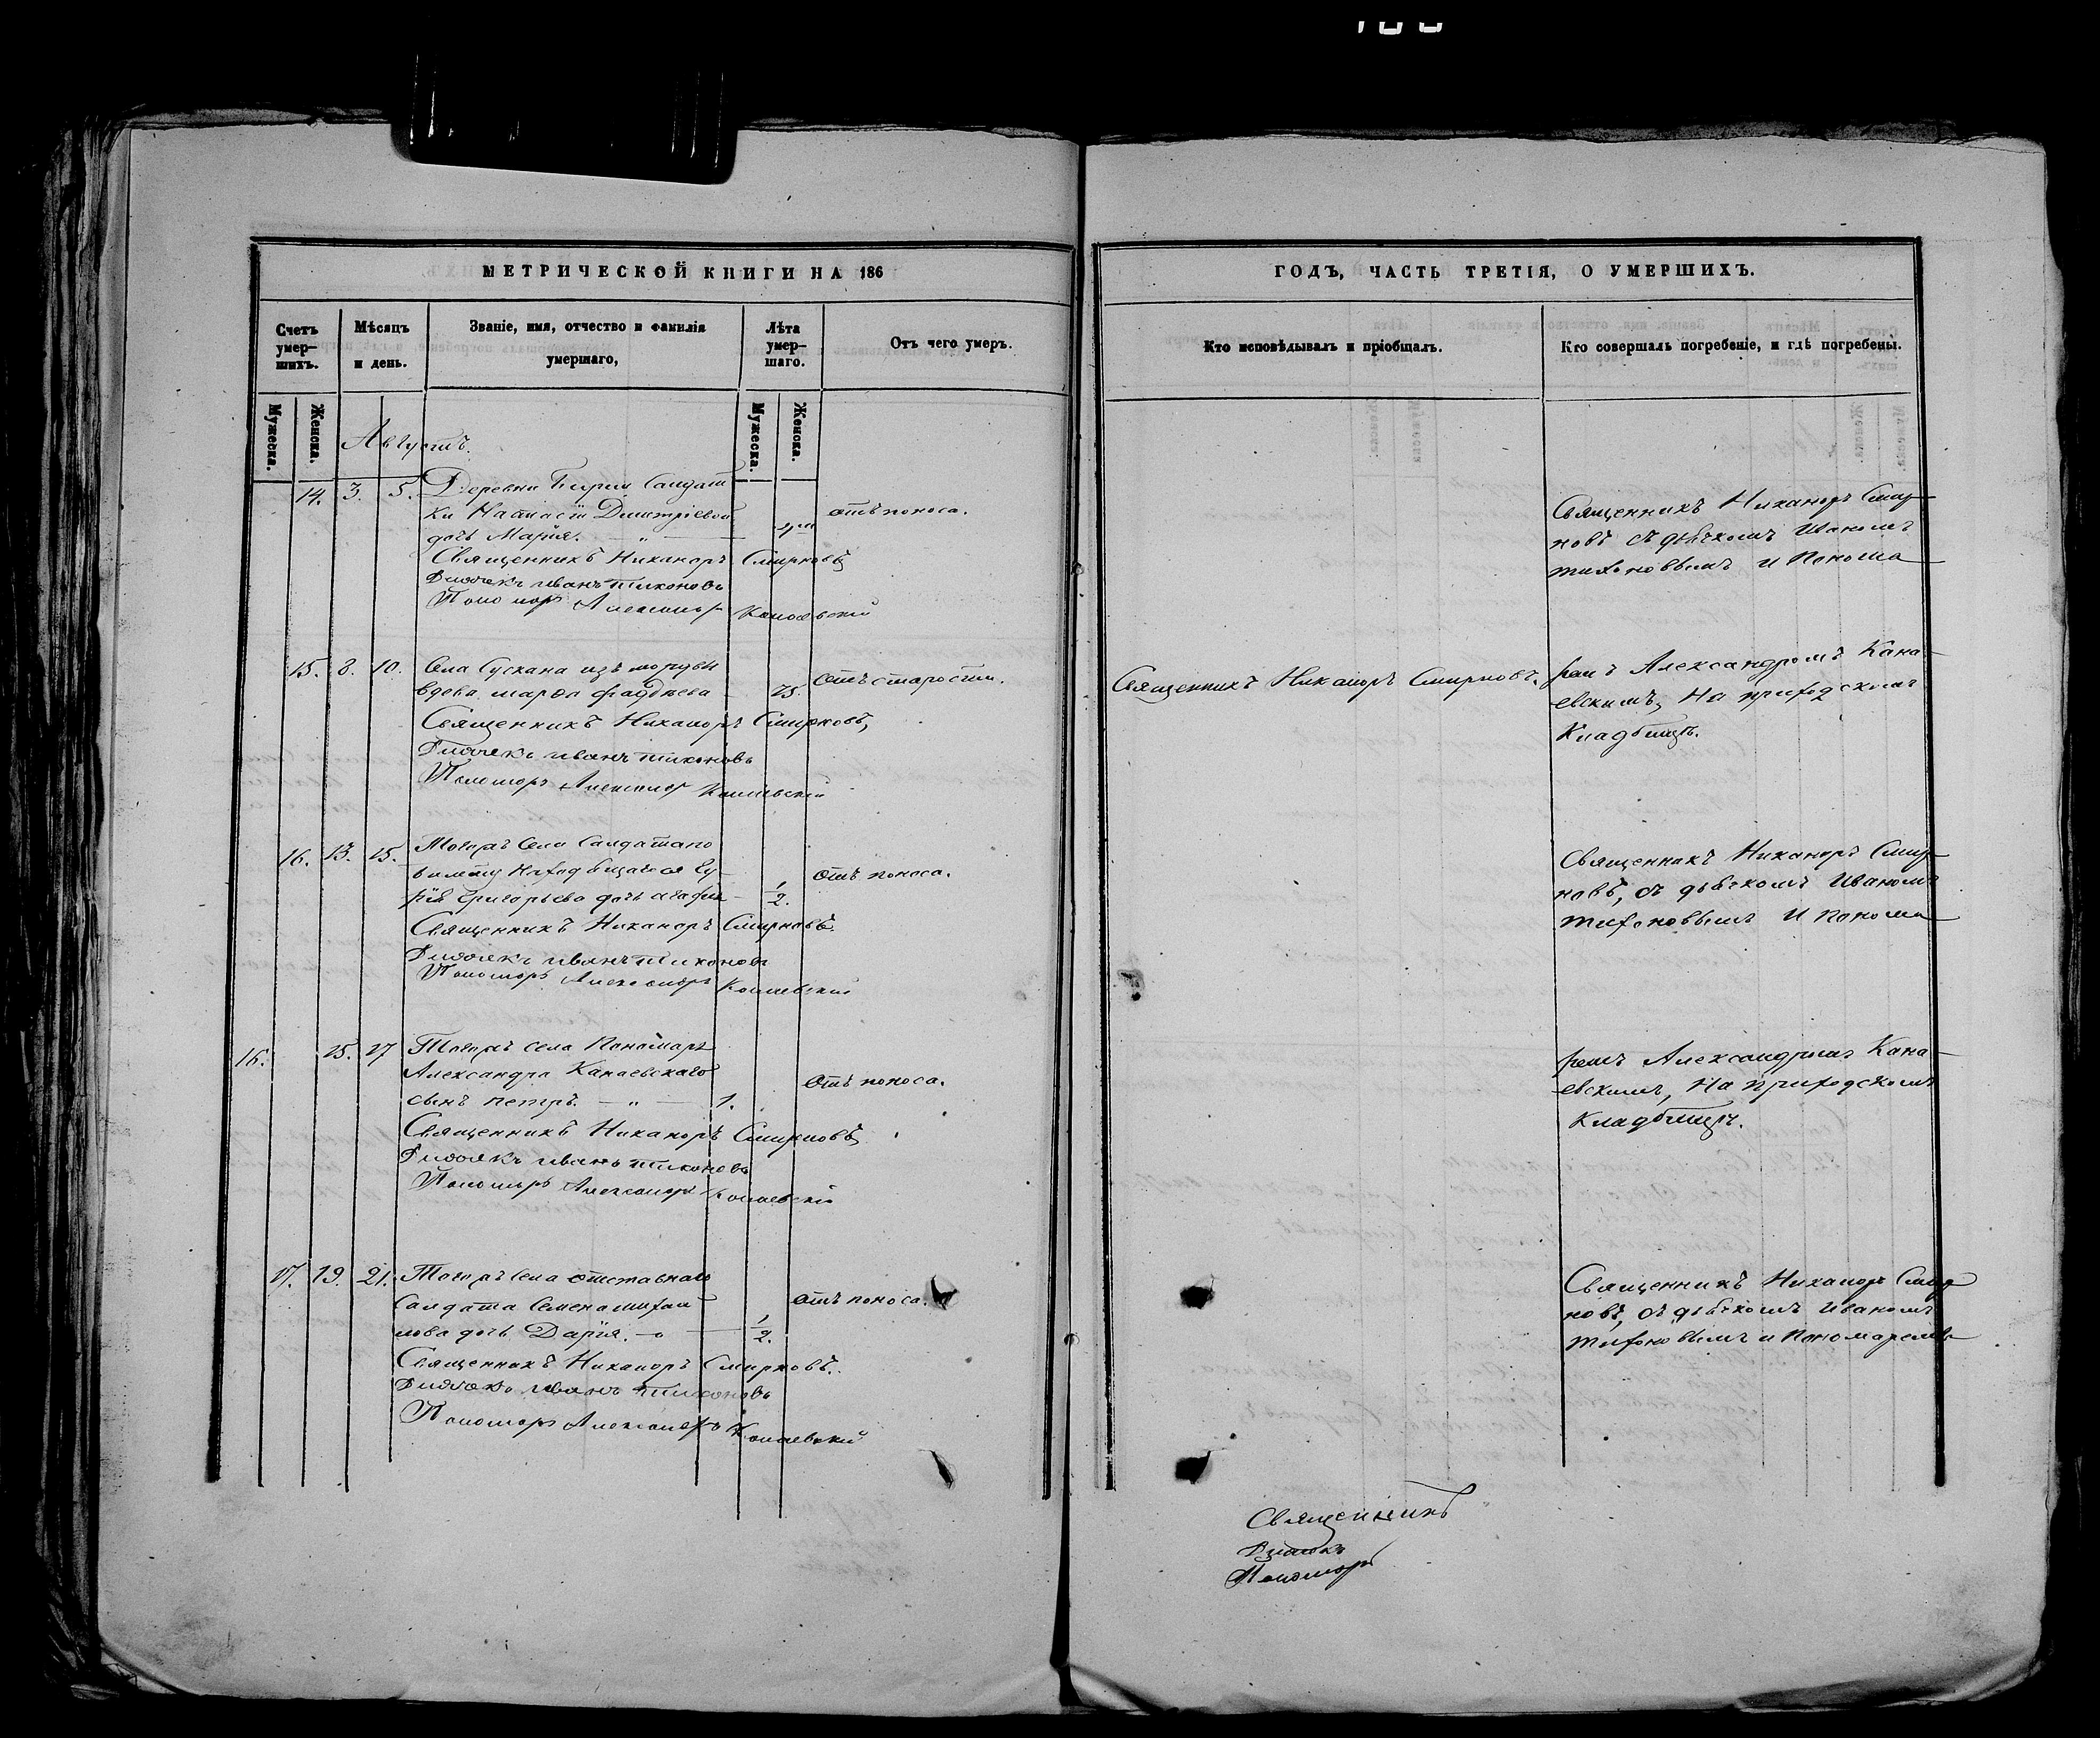 МЕТРИЧЕСКОЙ КНИГИ НА 186
Счетъ умер-шихъ.
Мѣсяцъ и день.
Званіе, имя, отчество и фамилія умершаго,
Лѣта умер-шаго.
Отъ чего умеръ.
Мужеска.
Женска.
Мужеска.
Женска.
Августъ.
14. 3. 5. Деревни Солдат
ки Настасіи Димитріевой отъ поноса.
дочь Марія.
Священникъ Никаноръ Смирновъ
Дьячекъ Иванъ Тихоновъ
Пономарь Александръ Канаевскій
15. 8. 10. Села Сускана изъ мордвы
вдова Марфа Фаддеева 75. отъ старости.
Священникъ Никаноръ Смирновъ,
Дьячекъ Иванъ Тихоновъ
Пономарь Александръ Канаевскій
16. 13. 15. Тогожъ Села Солдатаго
дочь Агафія 1/2. отъ поноса.
Священникъ Никаноръ Смирновъ.
Дьячекъ Иванъ Тихоновъ
Пономарь Александръ Канаевскій
16. 15. 17 Тогожъ села Пономаря
Александра Канаевскаго отъ поноса.
сынъ Петръ. — „ — 1.
Священникъ Никаноръ Смирновъ
Дьячекъ Иванъ Тихоновъ
Пономарь Александръ Канаевскій
17. 19. 21. Тогожъ Села отставнаго
Салдата Семена Михаи отъ поноса.
лова дочь Дарія. 1/2.
Священникъ Никаноръ Смирновъ.
Дьячекъ Иванъ Тихоновъ
Пономарь Александръ Канаевскій
ГОДЪ, ЧАСТЬ ТРЕТІЯ, О УМЕРШИХЪ.
Кто исповѣдывалъ и пріобщалъ.
Кто совершалъ погребеніе, и гдѣ погребены.
Священникъ Никаноръ Смир-
новъ съ дьячкомъ Иваномъ
Тихоновымъ и Понома
Священникъ Никаноръ Смирновъ.
ремъ Александромъ Кана-
евскимъ, На приходскомъ
Кладбищѣ.
Священникъ Никаноръ Смир-
новъ, съ дьячкомъ Иваномъ
Тихоновымъ и понома
ремъ Александромъ Кана-
евскимъ, На приходскомъ
Кладбищѣ.
Священникъ Никаноръ Смир
новъ, съ дьячкомъ Иваномъ
Тихоновымъ и Пономаремъ
Священникъ
Дьячекъ
Пономарь